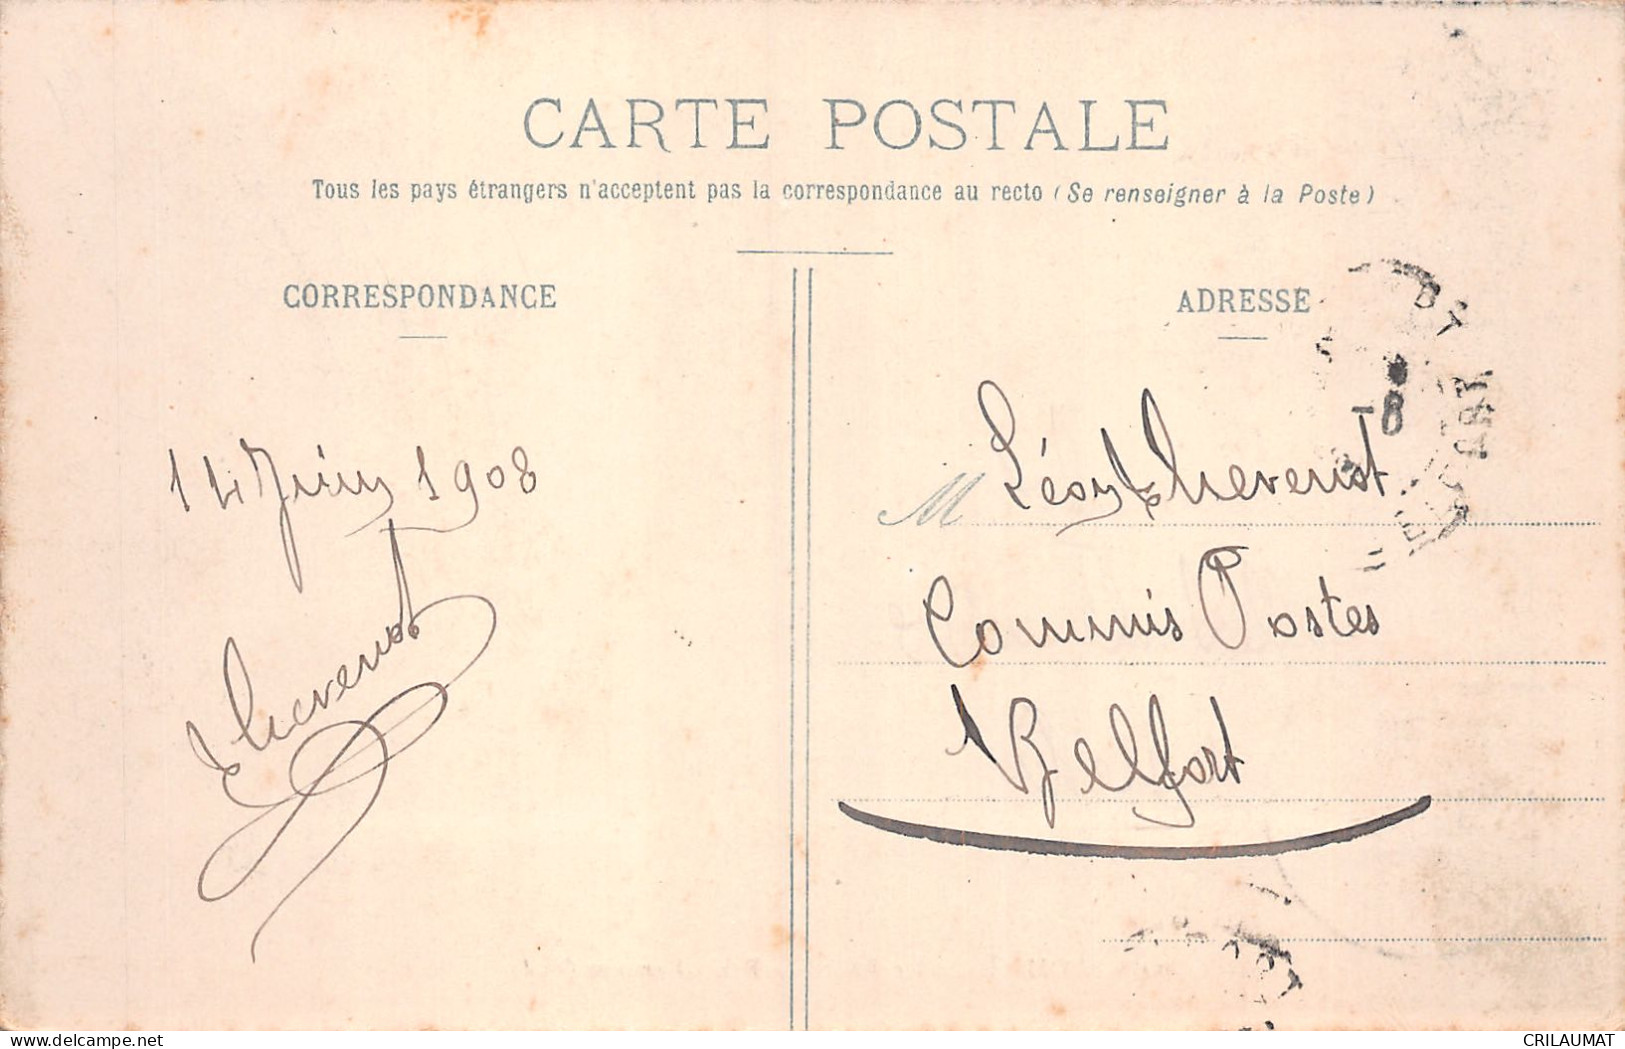 CARTE POSTALE
Tous les pays étrangers n'acceptent pas la correspondance au recto (Se renseigner à la Poste)
CORRESPONDANCE
ADRESSE
14 Juin 1908
Thevenot
M Léon Thevenot
Commis Postes
Belfort
-8
delcampe.net
CRILAUMAT